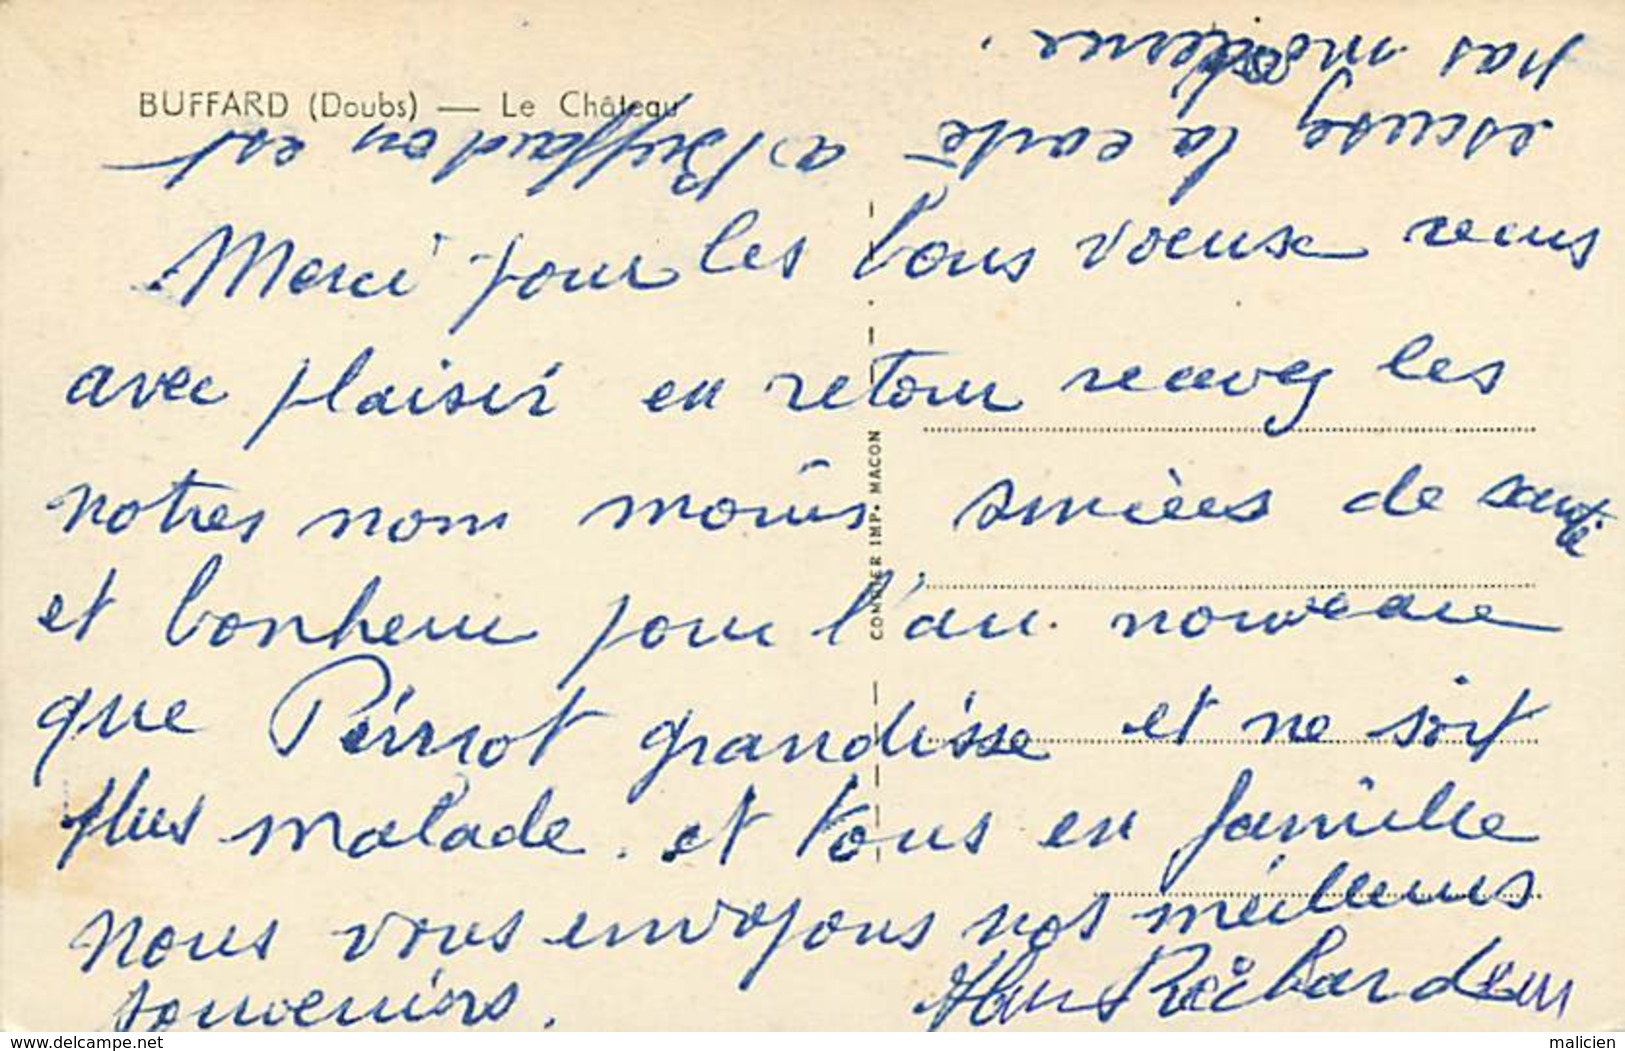 BUFFARD (Doubs) — Le Château
Merci pour les bons voeux reçus
avec plaisir en retour recevez les
notres non moins sincères de santé
et bonheur pour l'an nouveau
que Peirrot grandisse et ne soit
plus malade. et tous en famille
nous vous envoyons nos meilleurs
souvenirs.
escusez la carte a Buffard on est
pas moderne.
COMBIER IMP. MACON
delcampe.net
malicien